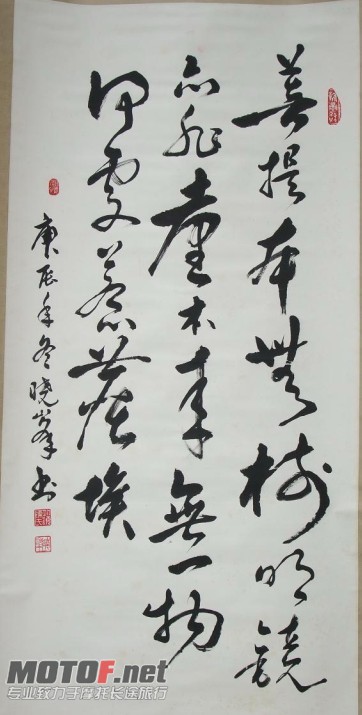 菩提本無樹明鏡
亦非臺本來無一物
何處惹塵埃
庚辰年冬曉峯书
MOTOF.net
专业致力于摩托长途旅行